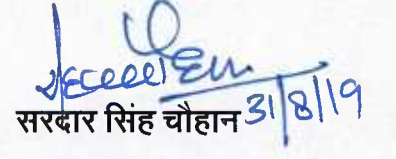 सरदार सिंह चौहान 31/8/19